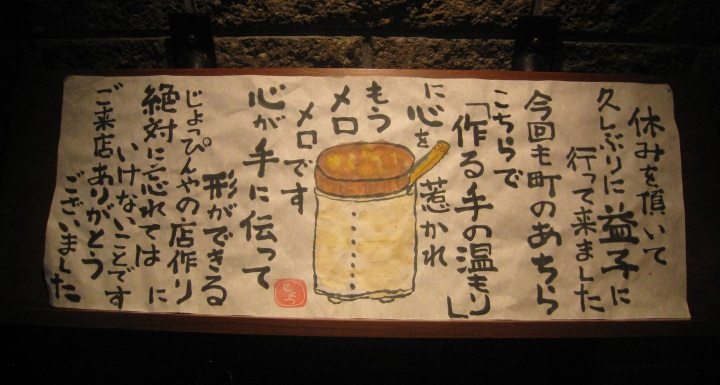 休みを頂いて
久しぶりに益子に
行って来ました
今回も町のあちら
こちらで
「作る手の温もり」
に心を惹かれ
もう
メロ
メロです
心が手に伝って
形ができる
じょっぴんやの店作り
に
絶対に忘れては
いけないことです
ご来店ありがとう
ございました
じょっ